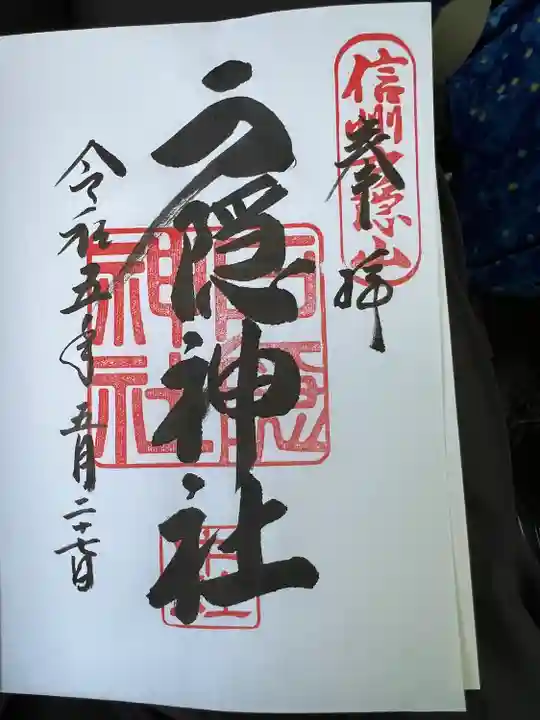 信州戸隠山
奉拝
戸隠神社
戸隠神社
令和五年五月二十七日